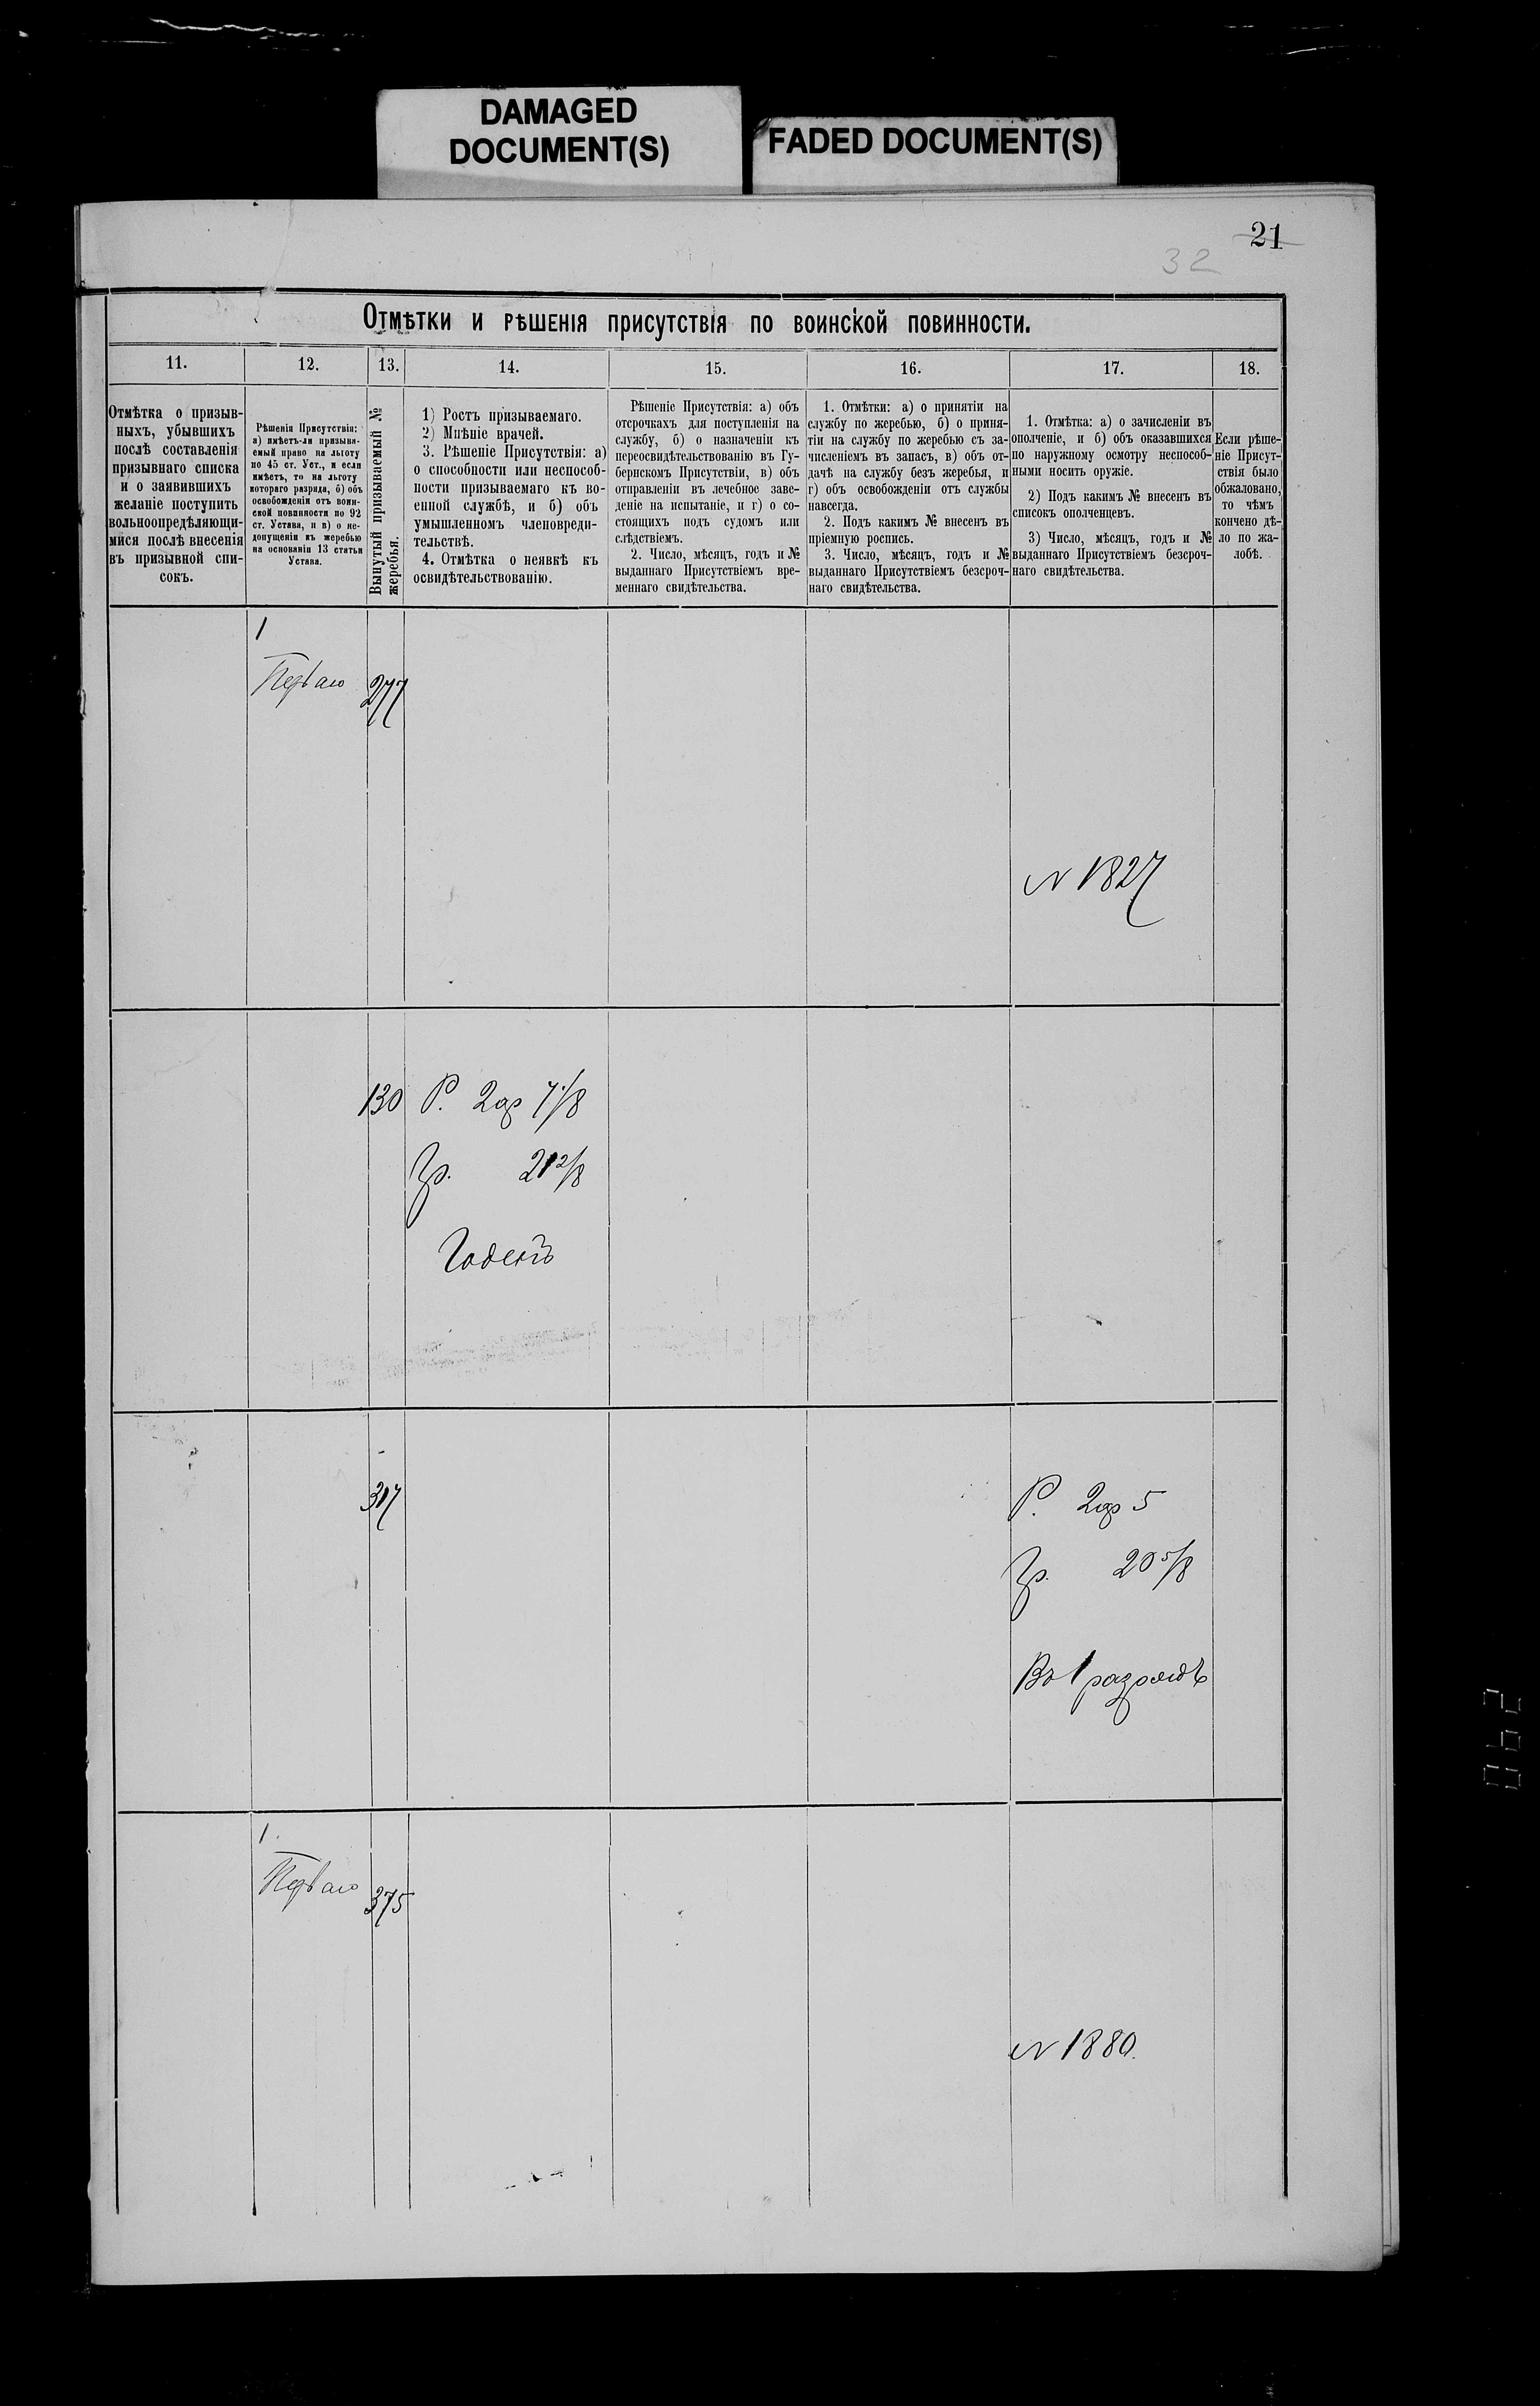 DAMAGED
DOCUMENT(S)
FADED DOCUMENT(S)
21
32
Отмѣтки и рѣшенія присутствія по воинской повинности.
11.
12.
13.
14.
15.
16.
17.
18.
Отмѣтка о призыв-
ныхъ, убывшихъ
послѣ составленія
призывнаго списка
и о заявившихъ
желаніе поступить
вольноопредѣляющи-
мися послѣ внесенія
въ призывной спи-
сокъ.
Рѣшенія Присутствія:
а) имѣетъ-ли призыва-
емый право на льготу
по 45 ст. Уст., и если
имѣетъ, то на льготу
котораго разряда, б) объ
освобожденіи отъ воин-
ской повинности по 92
ст. Устава, и в) о не-
допущеніи къ жеребью
на основаніи 13 статьи
Устава.
Вынутый призываемый №
жеребья.
1) Ростъ призываемаго.
2) Мнѣніе врачей.
3. Рѣшеніе Присутствія: а)
о способности или неспособ-
ности призываемаго къ во-
енной службѣ, и б) объ
умышленномъ членовреди-
тельствѣ.
4. Отмѣтка о неявкѣ къ
освидѣтельствованію.
Рѣшеніе Присутствія: а) объ
отсрочкахъ для поступленія на
службу, б) о назначеніи къ
переосвидѣтельствованію въ Гу-
бернскомъ Присутствіи, в) объ
отправленіи въ лечебное заве-
деніе на испытаніе, и г) о со-
стоящихъ подъ судомъ или
слѣдствіемъ.
2. Число, мѣсяцъ, годъ и №
выданнаго Присутствіемъ вре-
меннаго свидѣтельства.
1. Отмѣтки: а) о принятіи на
службу по жеребью, б) о приня-
тіи на службу по жеребью съ за-
численіемъ въ запасъ, в) объ от-
дачѣ на службу безъ жеребья, и
г) объ освобожденіи отъ службы
навсегда.
2. Подъ какимъ № внесенъ въ
пріемную роспись.
3. Число, мѣсяцъ, годъ и №
выданнаго Присутствіемъ безсроч-
наго свидѣтельства.
1. Отмѣтка: а) о зачисленіи въ
ополченіе, и б) объ оказавшихся
по наружному осмотру неспособ-
ными носить оружіе.
2) Подъ какимъ № внесенъ въ
списокъ ополченцевъ.
3) Число, мѣсяцъ, годъ и №
выданнаго Присутствіемъ безсроч-
наго свидѣтельства.
Если рѣше-
ніе Присут-
ствія было
обжаловано,
то чѣмъ
кончено дѣ-
ло по жа-
лобѣ.
1
Перваго 277
N 1827
130 Р. 2ар 7 1/8
Гр. 21 2/8
Годенъ
317
Р. 2ар 5
Гр. 20 5/8
Во 1 разрядъ
1
Перваго 375
N 1880.
290